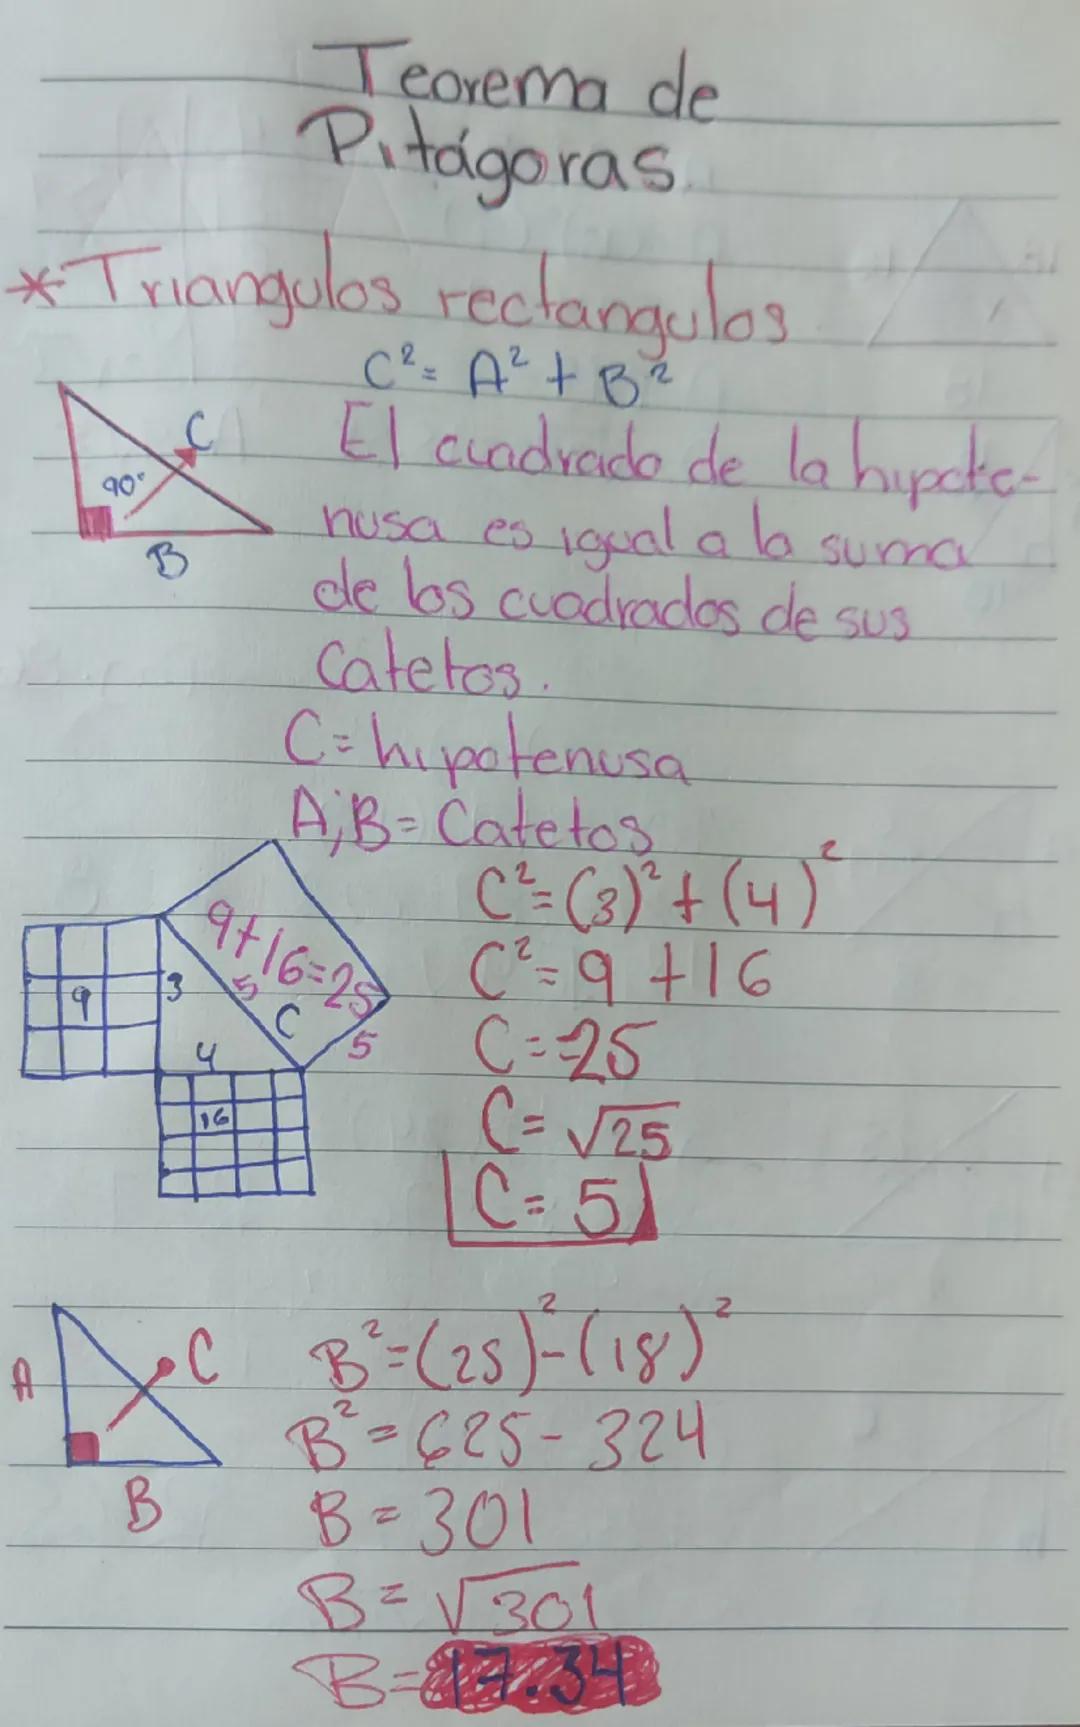 Teorema de
Pitágoras.
* Triangulos rectangulos
C² = A² + B²
C
90°
B
El cuadrado de la hipote-
nusa es igual a la suma
de los cuadrados de sus
Catetos.
C = hipotenusa
A;B = Catetos
9+16=25
9
3
5
C
5
4
16
C² = (3)² + (4)²
C² = 9 + 16
C = 25
C = √25
C = 5
A
C
B
B² = (25)² - (18)²
B² = 625 - 324
B = 301
B = √301
B = 17.34